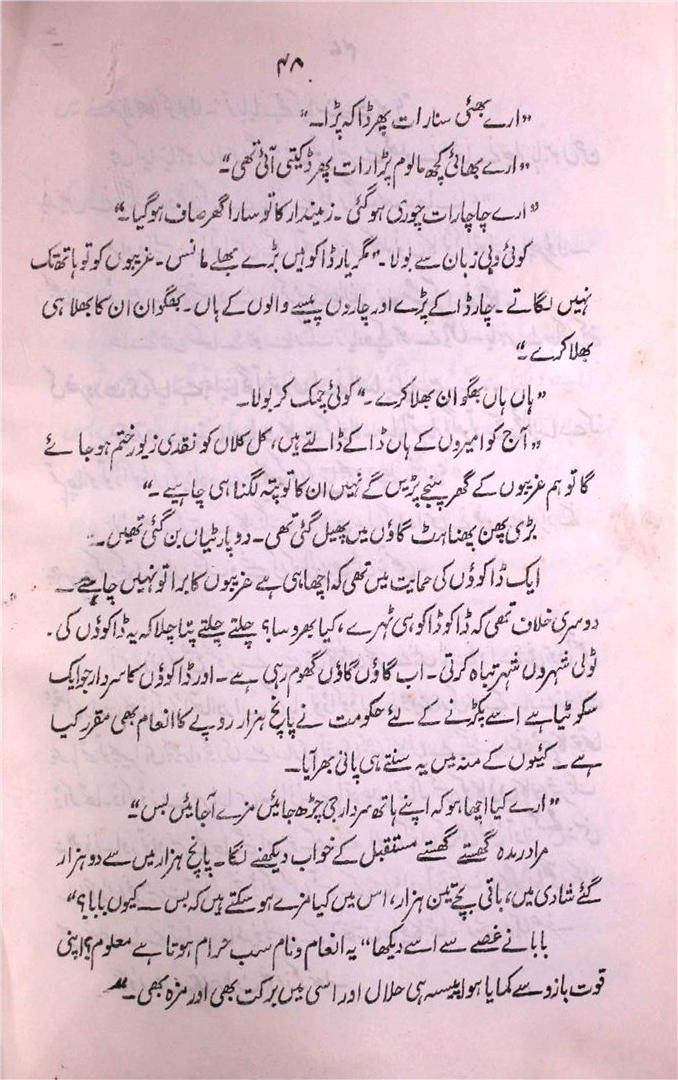 ۴۸
”ارے بھئی سنا رات پھر ڈاکہ پڑا۔“
”ارے بھائی کچھ مالوم پڑا رات پھر ڈکیتی آئی تھی“
”ارے چاچا رات چوری ہوگئی۔ زمیندار کا تو سارا گھر صاف ہوگیا۔“
کوئی دبی زبان سے بولا۔ ”مگر یار ڈاکو ہیں بڑے بھلے مانس۔ غریبوں کو تو ہاتھ تک
نہیں لگاتے۔ چار ڈاکے پڑے اور چاروں پیسے والوں کے ہاں۔ بھگوان ان کا بھلا ہی
بھلا کرے“
”ہاں ہاں بھگوان بھلا کرے۔“ کوئی چمک کر بولا۔
”آج کو امیروں کے ہاں ڈاکے ڈالتے ہیں، کل کلاں کو نقدی زیور ختم ہو جائے
گا تو ہم غریبوں کے گھر پنجے پڑیں گے نہیں ان کا تو پتہ لگنا ہی چاہیے۔“
بڑی بھن بھناہٹ گاؤں میں پھیل گئی تھی۔ دو پارٹیاں بن گئی تھیں۔
ایک ڈاکوؤں کی حمایت میں تھی کہ اچھا ہی ہے غریبوں کا برا تو نہیں چاہتے۔
دوسری خلاف تھی کہ ڈاکو ڈاکو ہی ٹہرے، کیا بھروسا؟ چلتے چلتے پتا چلا کہ یہ ڈاکوؤں کی
ٹولی شہروں شہر تباہ کرتی۔ اب گاؤں گاؤں گھوم رہی ہے۔ اور ڈاکوؤں کا سردار جو ایک
سکوٹیا ہے اسے پکڑنے کے لئے حکومت نے پانچ ہزار روپے کا انعام بھی مقرر کیا
ہے۔ کیئوں کے منہ میں یہ سنتے ہی پانی بھر آیا۔
”ارے کیا اچھا ہو کہ اپنے ہاتھ سردار جی چڑھ جائیں مزے آجائیں بس“۔
مرادرمدہ گھستے گھستے مستقبل کے خواب دیکھنے لگا۔ پانچ ہزار میں سے دو ہزار
گئے شادی میں، باقی بچے تین ہزار، اس میں کیا مزے ہو سکتے ہیں کہ بس۔ کیوں بابا؟“
بابا نے غصے سے اسے دیکھا ”یہ انعام ونام سب حرام ہوتا ہے معلوم؟ اپنی
قوت بازو سے کمایا ہوا پیسہ ہی حلال اور اسی میں برکت بھی اور مزہ بھی۔“